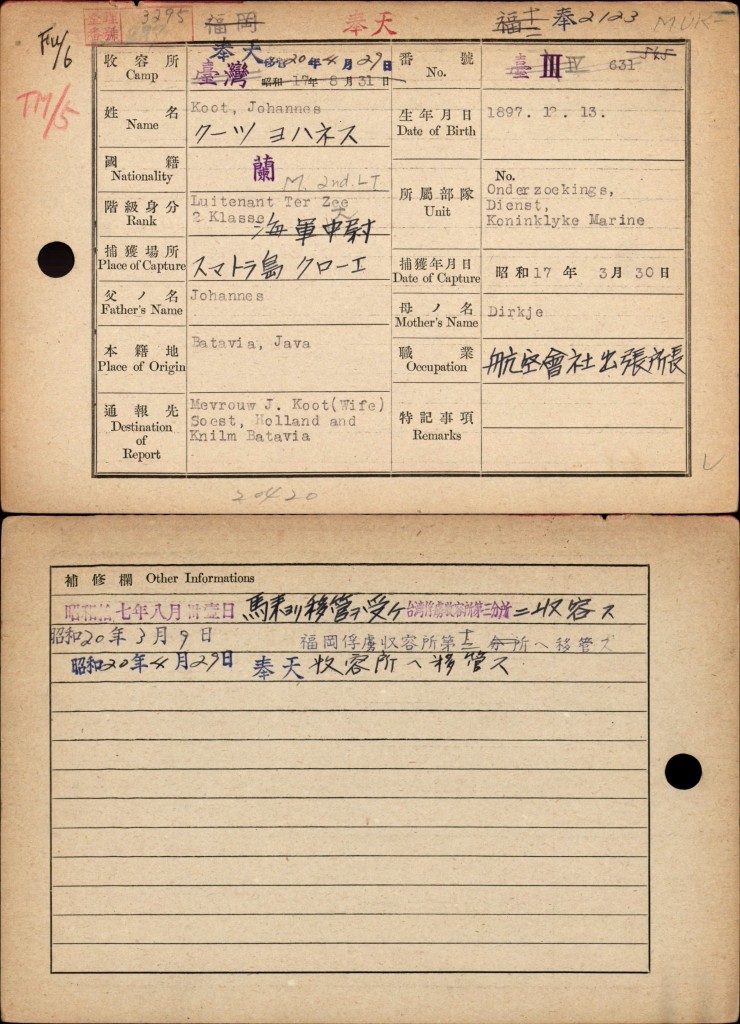 3295
福岡
奉天
福十二
奉2123
MUK-
Fu/6
TM/5
收容所
Camp
奉天
昭和20年4月29日
臺灣
昭和17年8月31日
番號
No.
臺 III IV 631
545
姓名
Name
Koot, Johannes
クーツ ヨハネス
生年月日
Date of Birth
1897. 12. 13.
國籍
Nationality
蘭
M. 2nd. LT
階級身分
Rank
Luitenant Ter Zee
2 Klasse
海軍中尉
大
所屬部隊
Unit
No.
Onderzoekings,
Dienst,
Koninklyke Marine
捕獲場所
Place of Capture
スマトラ島 クローエ
捕獲年月日
Date of Capture
昭和17年 3月30日
父ノ名
Father's Name
Johannes
母ノ名
Mother's Name
Dirkje
本籍地
Place of Origin
Batavia, Java
職業
Occupation
航空會社出張所長
通報先
Destination
of
Report
Mevrouw J. Koot(Wife)
Soest, Holland and
Knilm Batavia
特記事項
Remarks
20420
補修欄 Other Informations
七年八月卅壹日 馬来ヨリ移管ヲ受ケ台湾俘虜收容所第三分所ニ收容ス
昭和20年3月9日 福岡俘虜収容所第十二分所へ移管ス
昭和20年4月29日 奉天收容所へ移管ス